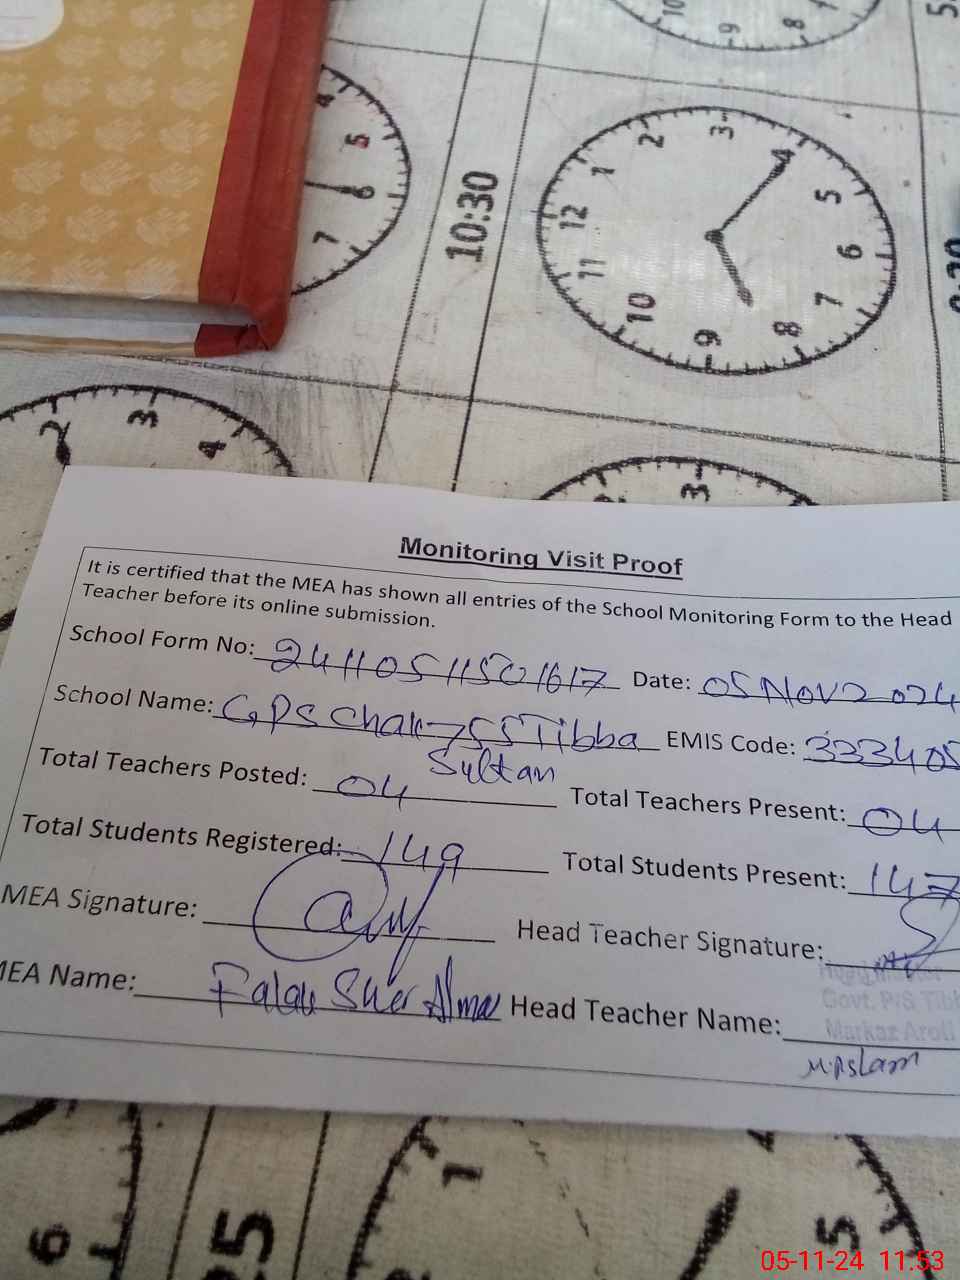 10:30
Monitoring Visit Proof
It is certified that the MEA has shown all entries of the School Monitoring Form to the Head
Teacher before its online submission.
School Form No: 24110511501617 Date: 05 Nov 2024
School Name: GPS Chak 755 Tibba EMIS Code: 333405
Sultan
Total Teachers Posted: 04 Total Teachers Present: 04
Total Students Registered: 149 Total Students Present: 147
MEA Signature: Head Teacher Signature:
MEA Name: Sher Head Teacher Name:
Govt. P/S Tibb
Markaz Aroti
M. Aslam
05-11-24 11:53